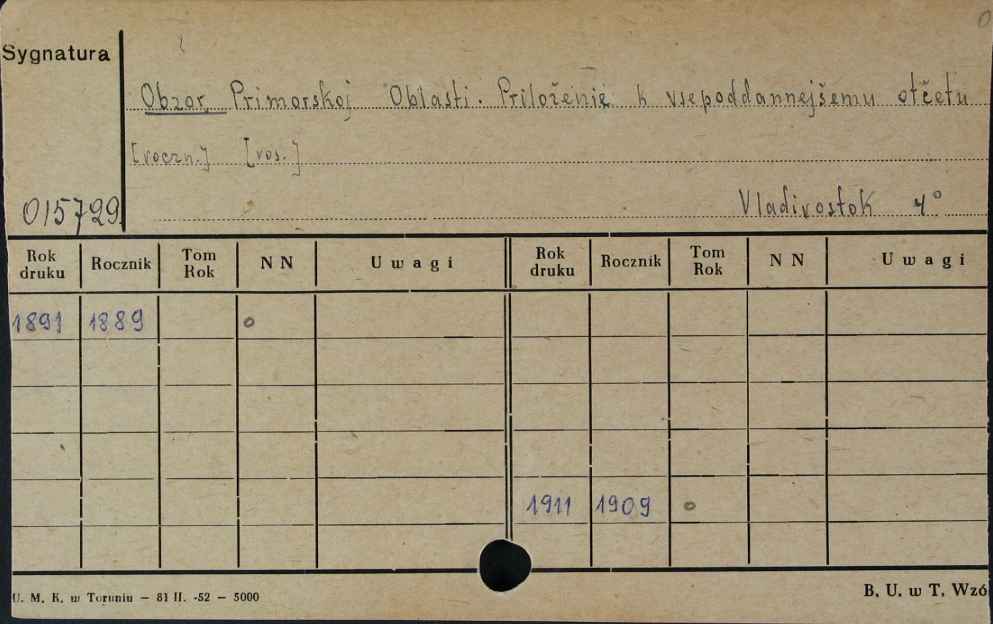 Sygnatura
Obzor Primorskoj Oblasti. Priloženie k vsepoddannejšemu otčetu
[roczn.] [ros.]
015729
Vladivostok 4°
Rok druku Rocznik Tom Rok NN Uwagi Rok druku Rocznik Tom Rok NN Uwagi
1891 1889 o
1911 1909 o
U. M. K. w Toruniu – 81 II. -52 – 5000
B. U. w T. Wzó